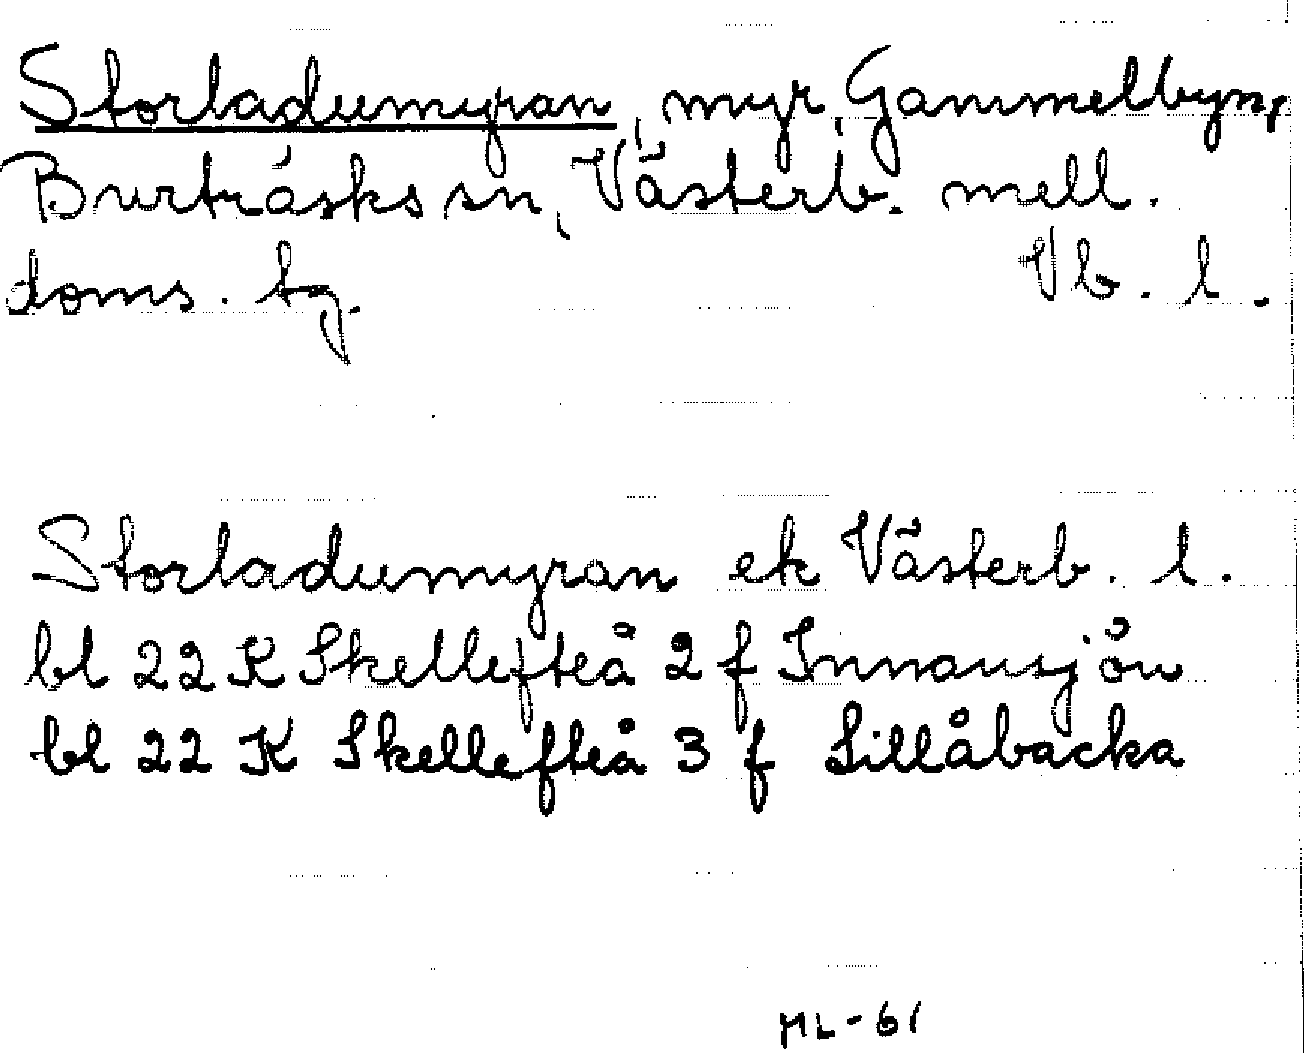 Storladumyran, myr, Gammelbyn,
Burträsks sn, Västerb. mell.
doms. tg. Vb. l.
Storladumyran ek Västerb. l.
bl 22 K Skellefteå 2 f Innansjön
bl 22 K Skellefteå 3 f Lillåbacka
ML-61